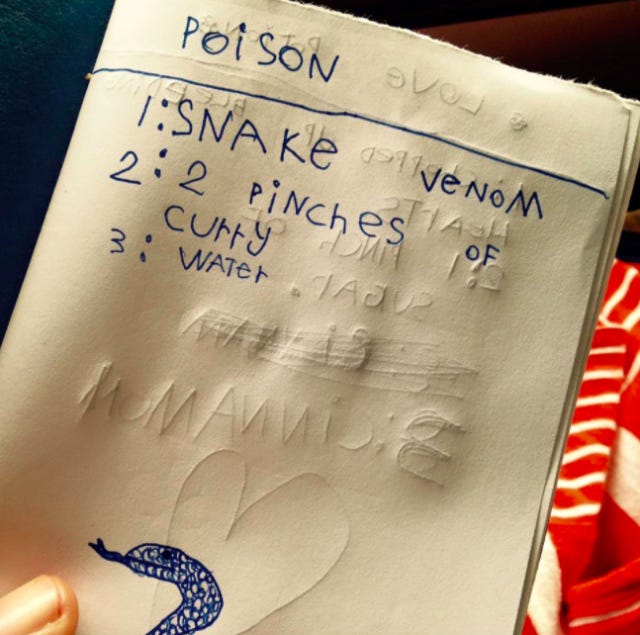 POiSON
1:SNAKe veNOM
2:2 PiNches OF
curry
3: WATer